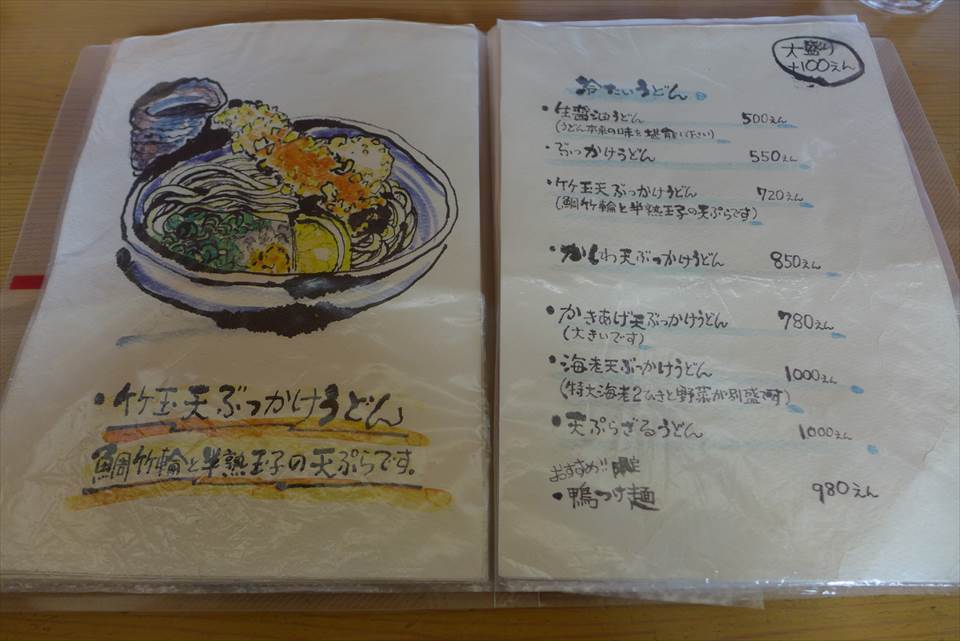 ・竹玉天ぶっかけうどん
鯛竹輪と半熟玉子の天ぷらです。
大盛り
+100えん
冷たいうどん
・生醤油うどん 500えん
(うどん本来の味を堪能下さい)
・ぶっかけうどん 550えん
・竹玉天ぶっかけうどん 720えん
(鯛竹輪と半熟玉子の天ぷらです)
・かしわ天ぶっかけうどん 850えん
・かきあげ天ぶっかけうどん 780えん
(大きいです)
・海老天ぶっかけうどん 1000えん
(特大海老2ひきと野菜が別盛)
・天ぷらざるうどん 1000えん
おすすめ!! 限定
・鴨つけ麺 980えん